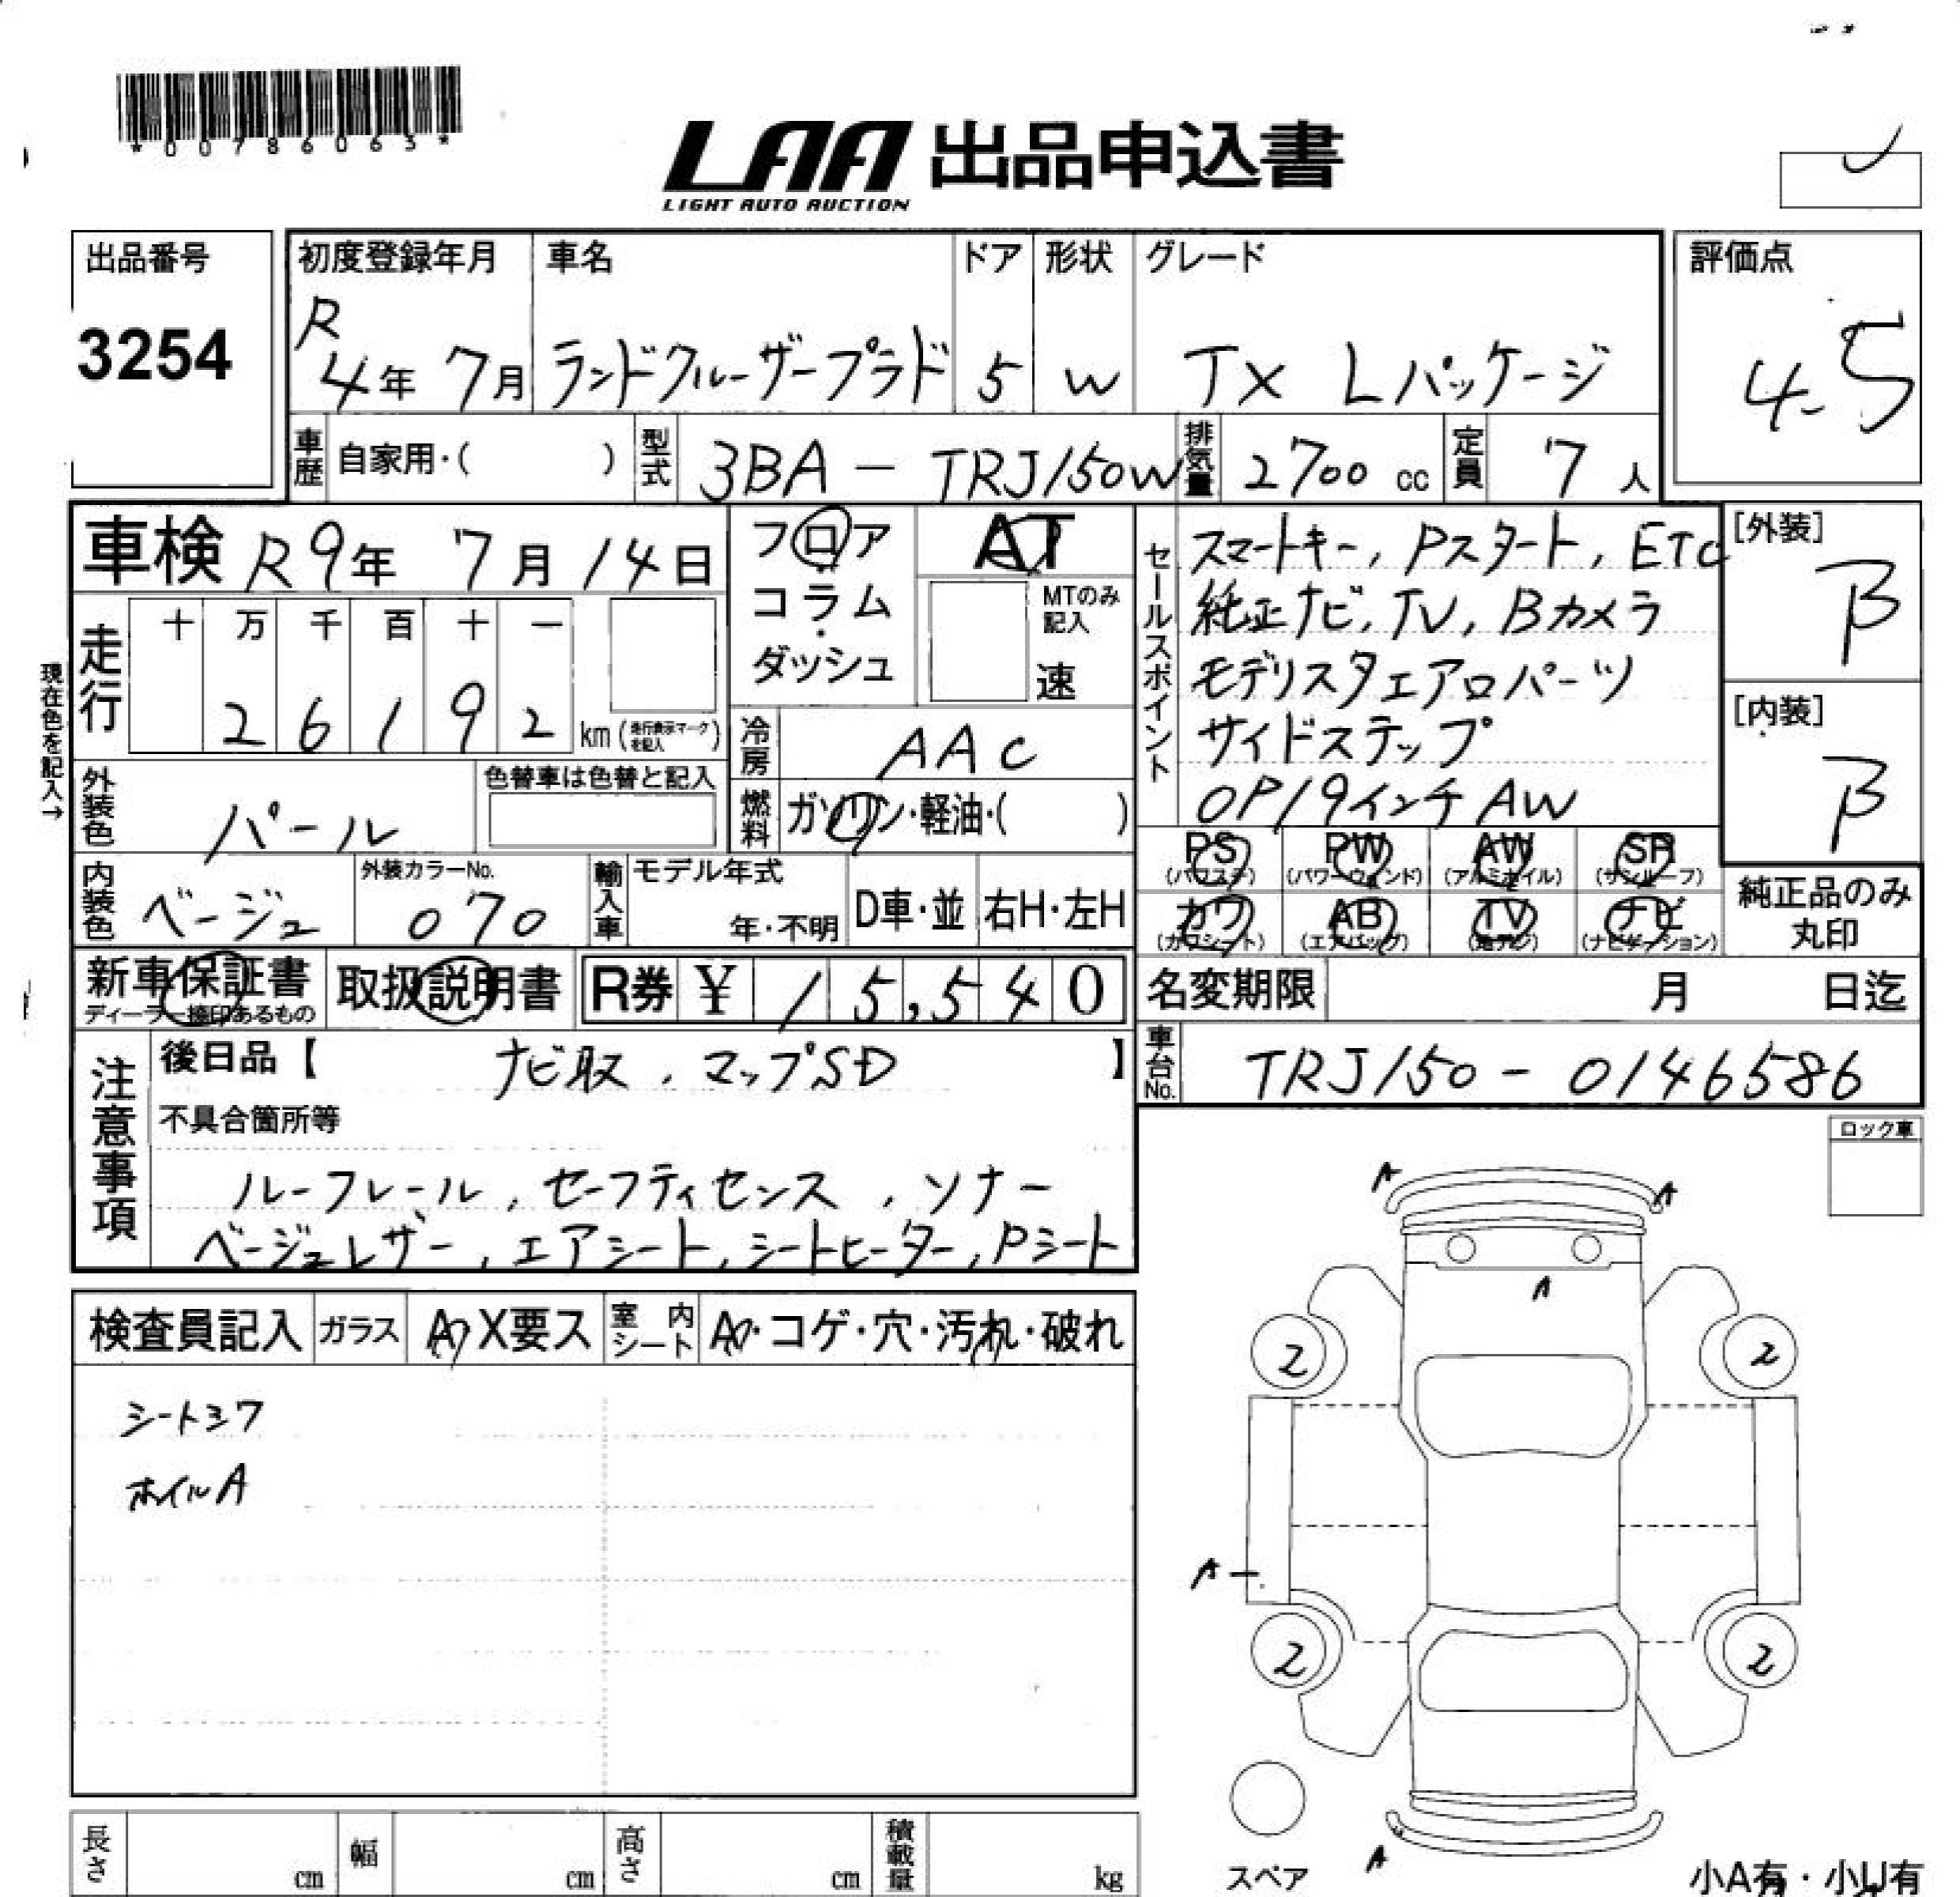 *00786063*
LAA 出品申込書
LIGHT AUTO AUCTION
出品番号
3254
初度登録年月
R
4年 7月
車名
ランドクルーザープラド
ドア
5
形状
W
グレード
TX Lパッケージ
評価点
4.5
車歴 自家用・( )
型式 3BA - TRJ150W
排気量 2700 cc
定員 7 人
車検 R9年 7月 14日
フロア
コラム
・
ダッシュ
AT
MTのみ
記入
速
セールスポイント
スマートキー, Pスタート, ETC
純正ナビ, TV, Bカメラ
モデリスタエアロパーツ
サイドステップ
OP19インチAW
[外装]
β
[内装]
β
現在色を記入→
走行
十 万 千 百 十 一
2 6 1 9 2 km (走行表示マークを記入)
冷房 AAC
外装色 パール
色替車は色替と記入
燃料 ガソリン・軽油・( )
内装色 ベージュ
外装カラーNo.
070
輸入車 モデル年式
年・不明
D車・並
右H・左H
PS (パワステ)
PW (パワーウィンド)
AW (アルミホイル)
SR (サンルーフ)
カワ (カワシート)
AB (エアバッグ)
TV (地デジ)
ナビ (ナビゲーション)
純正品のみ
丸印
新車保証書
ディーラー捺印あるもの
取扱説明書
R券 ¥ 15,540
名変期限 月 日迄
車台No. TRJ150-0146586
注意事項
後日品【 ナビ取, マップSD 】
不具合箇所等
ルーフレール, セーフティセンス, ソナー
ベージュレザー, エアシート, シートヒーター, Pシート
ロック車
検査員記入 ガラス A・X要ス 室内シート A・コゲ・穴・汚れ・破れ
シートシワ
ホイルA
A
A
A
2
2
A
2
2
A
スペア
小A有・小U有
長さ cm
幅 cm
高さ cm
積載量 kg